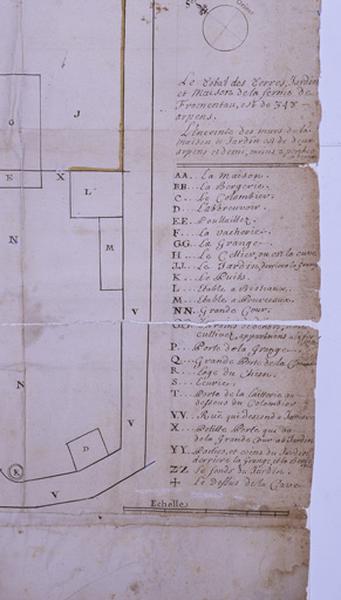 Orient
Le Total des Terres, Jardin
et Maison de la ferme de
Fromentau, est de 348
arpens.
L'incinte des murs de la
maison et Jardin est de deux
arpens et demi, moins
AA.. La Maison.
BB.. La Bergerie.
C.. Le Colombier.
D.. L'abbreuvoir.
EE. Poullaillez.
F.. La vacherie.
GG.. La Grange.
H.. Le Cellier, ou est la cuve
JJ.. Le Jardin, derriere la
K.. Le Puits.
L.. Etable a Bestiaux.
M.. Etable a Pourceaux.
NN. Grande Cour.
P.. Porte de la Grange.
Q.. Grande Porte de la
R.. Loge du Chien.
S.. Ecurie.
T.. Porte de la laitterie au
dessous du Colombier.
VV. Rue qui descend a
X.. Petitte Porte qui va
de la Grande Cour au Jardin
YY. et coins du Jardin
derriere la Grange, et la
ZZ Le fonds du Jardin.
+ Le dessus de la Cave
Echelle
G
J
E
X
L
N
M
V
N
V
D
K
V